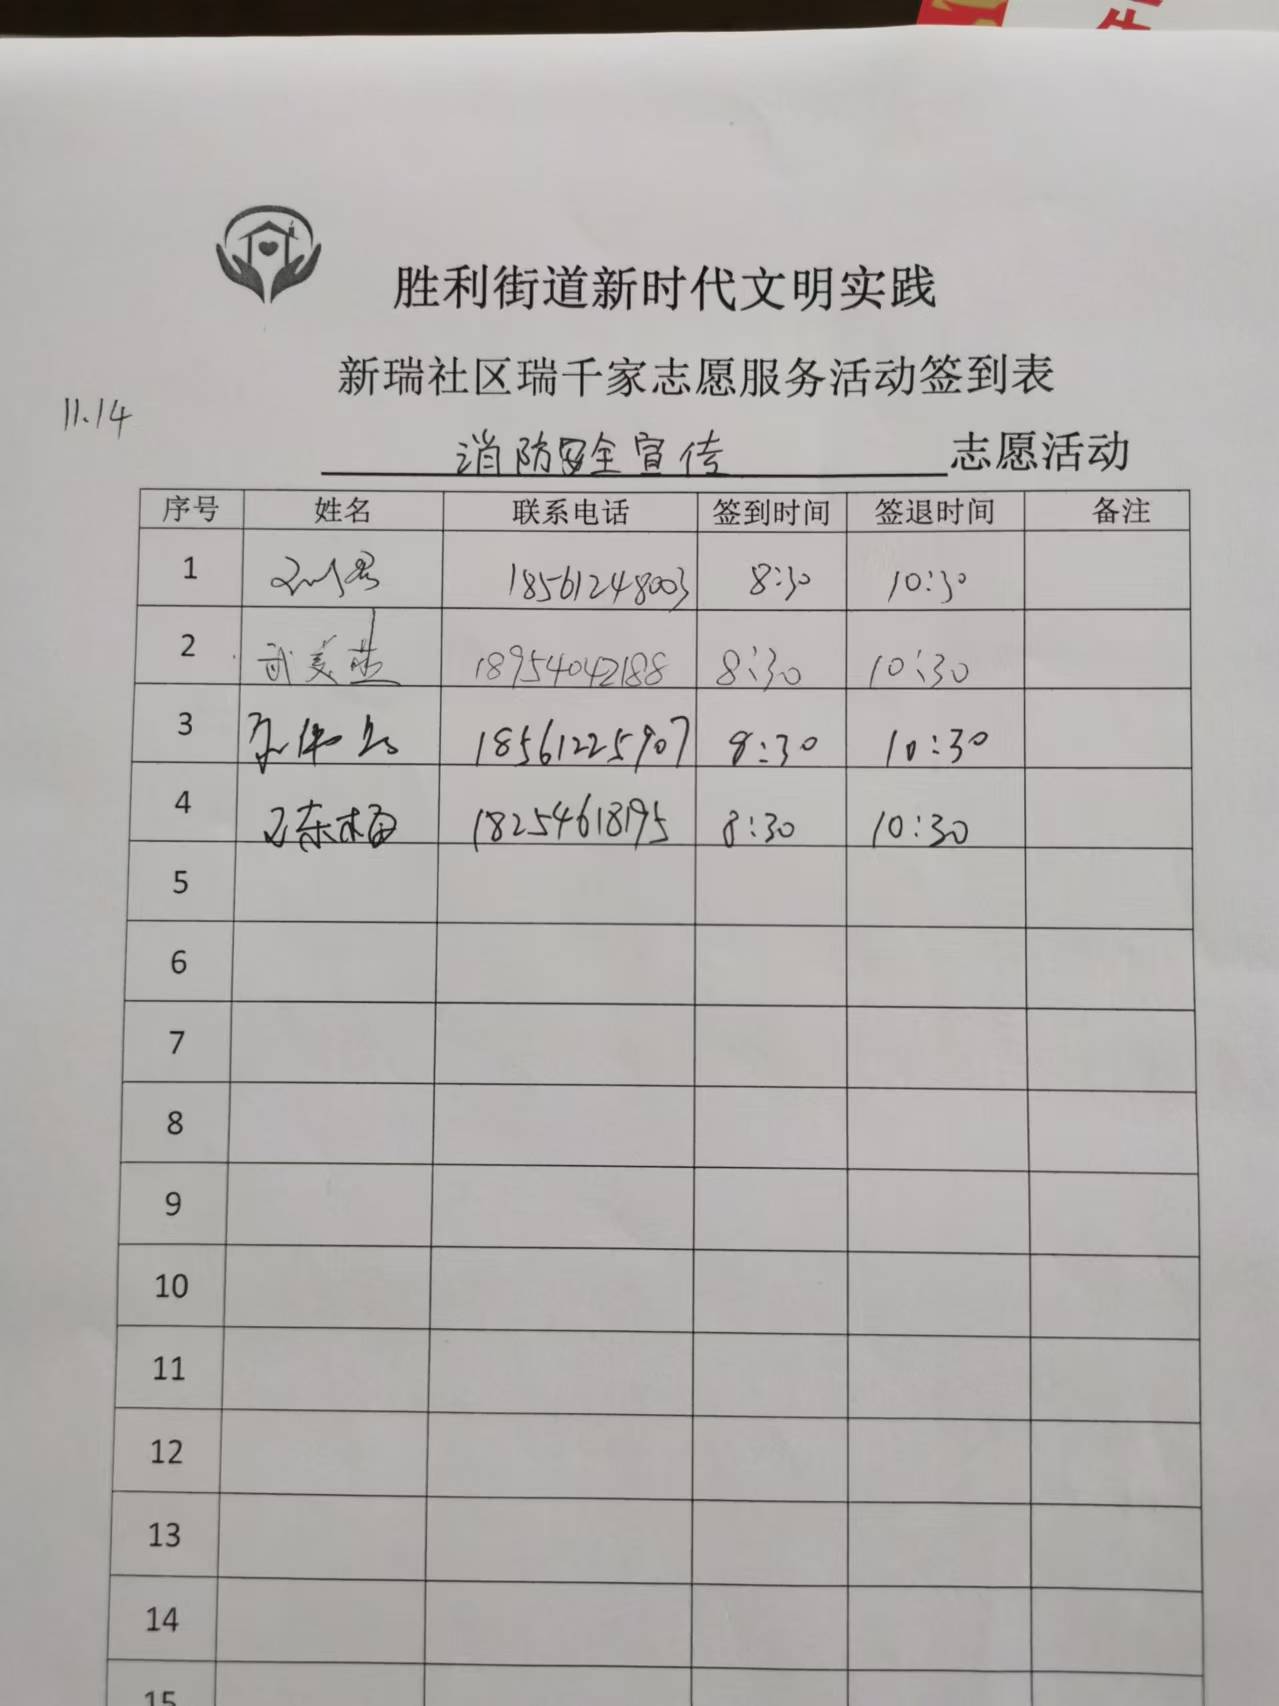 胜利街道新时代文明实践
新瑞社区瑞千家志愿服务活动签到表
11.14
消防安全宣传 志愿活动
序号 姓名 联系电话 签到时间 签退时间 备注
1 18561248003 8:30 10:30
2 武美 18954042188 8:30 10:30
3 18561225907 8:30 10:30
4 王东梅 18254618195 8:30 10:30
5
6
7
8
9
10
11
12
13
14
15